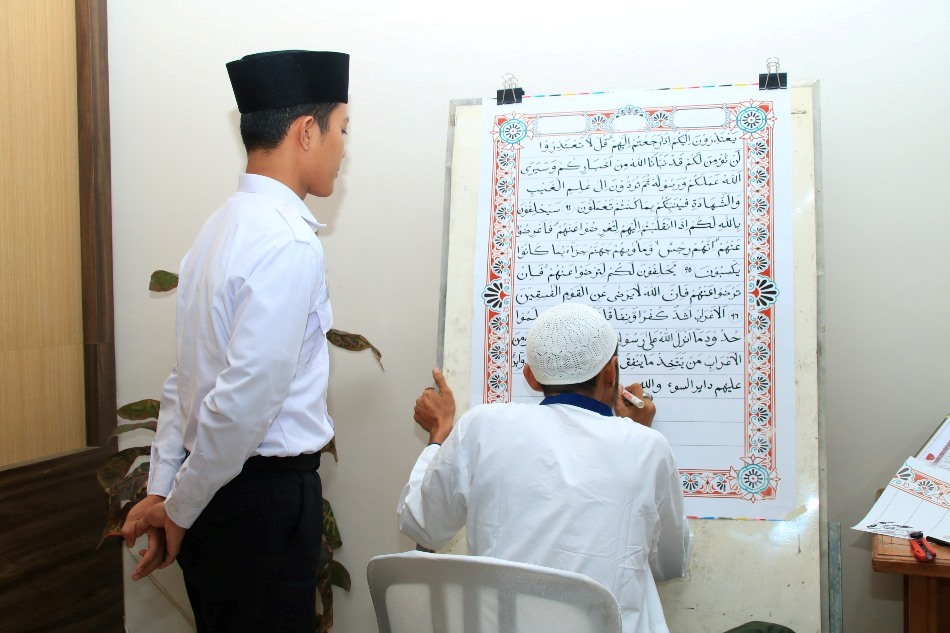 يعتذرون اليكم اذا رجعتم اليهم قل لا تعتذروا
لن نؤمن لكم قد نبأنا الله من اخباركم وسيرى
الله عملكم ورسوله ثم تردون الى علم الغيب
والشهادة فينبئكم بما كنتم تعملون ٩٤ سيحلفون
بالله لكم اذا انقلبتم اليهم لتعرضوا عنهم فاعرضوا
عنهم انهم رجس ومأويهم جهنم جزاء بما كانوا
يكسبون ٩٥ يحلفون لكم لترضوا عنهم فان
ترضوا عنهم فان الله لا يرضى عن القوم الفسقين
٩٦ الاعراب اشد كفرا ونفاقا
حدود ما انزل الله على رسوله
الاعراب من يتخذ ما ينفق
عليهم دايرة السوء والله